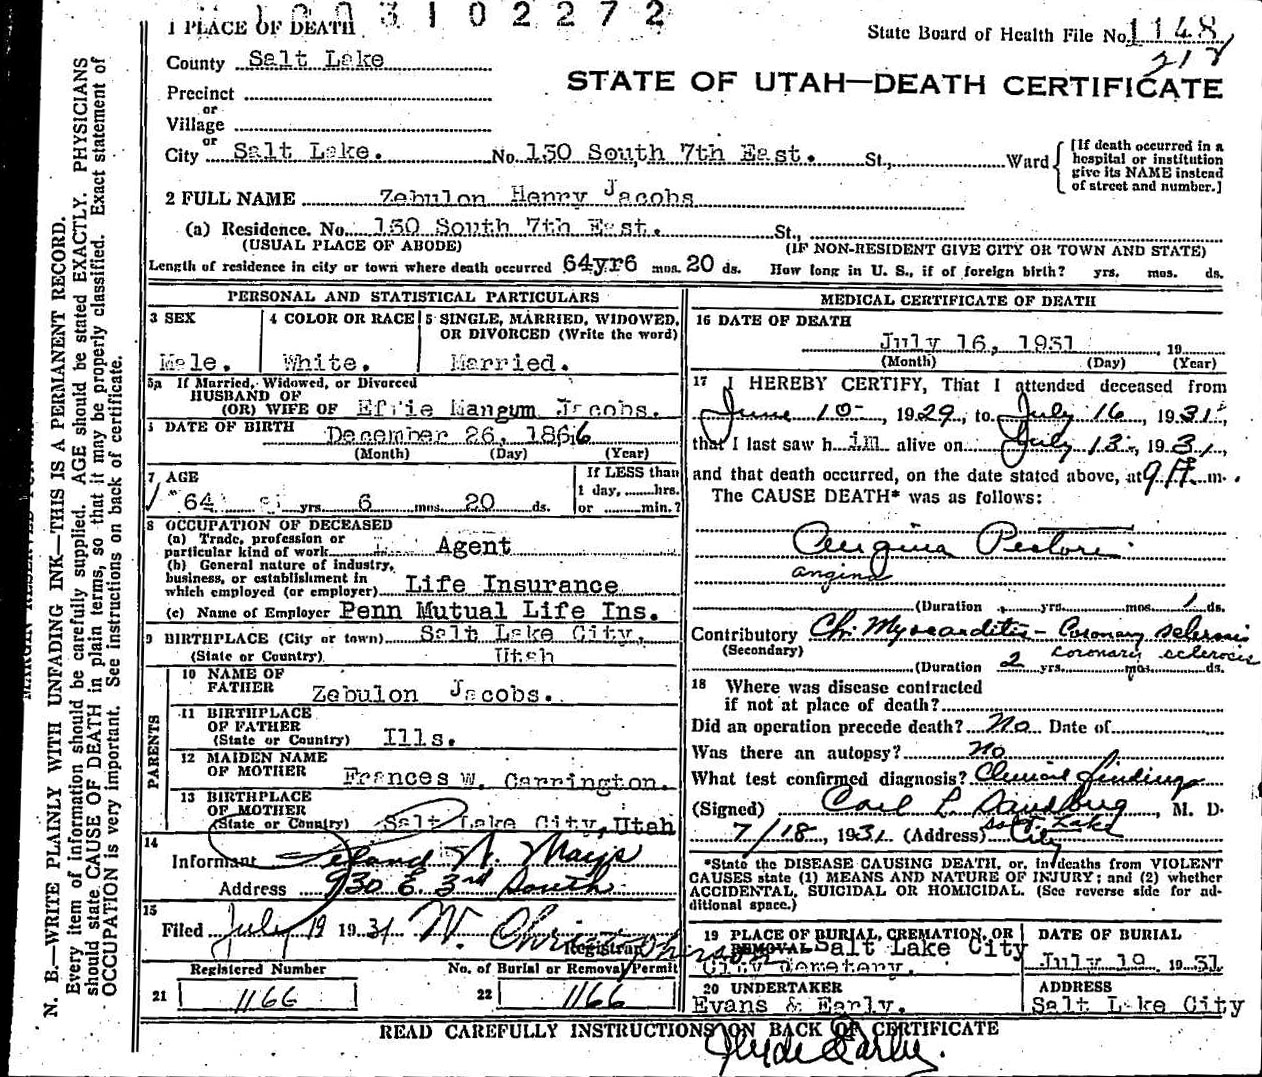 1003102272
1 PLACE OF DEATH
State Board of Health File No. 1148
218
County Salt Lake
STATE OF UTAH—DEATH CERTIFICATE
Precinct
or
Village
or
City Salt Lake. No. 150 South 7th East. St., Ward
[If death occurred in a
hospital or institution
give its NAME instead
of street and number.]
2 FULL NAME Zebulon Henry Jacobs
(a) Residence. No. 150 South 7th East. St.,
(USUAL PLACE OF ABODE) (IF NON-RESIDENT GIVE CITY OR TOWN AND STATE)
Length of residence in city or town where death occurred 64yr6 mos. 20 ds. How long in U. S., if of foreign birth? yrs. mos. ds.
PERSONAL AND STATISTICAL PARTICULARS
3 SEX
Male.
4 COLOR OR RACE
White.
5 SINGLE, MARRIED, WIDOWED,
OR DIVORCED (Write the word)
Married.
5a If Married, Widowed, or Divorced
HUSBAND OF
(OR) WIFE OF Effie Mangum Jacobs.
DATE OF BIRTH December 26, 1866
(Month) (Day) (Year)
7 AGE
64 yrs. 6 mos. 20 ds.
If LESS than
1 day, hrs.
or min.?
8 OCCUPATION OF DECEASED
(a) Trade, profession or
particular kind of work Agent
(b) General nature of industry,
business, or establishment in
which employed (or employer) Life Insurance
(c) Name of Employer Penn Mutual Life Ins.
9 BIRTHPLACE (City or town) Salt Lake City,
(State or Country) Utah
PARENTS
10 NAME OF
FATHER Zebulon Jacobs.
11 BIRTHPLACE
OF FATHER
(State or Country) Ills.
12 MAIDEN NAME
OF MOTHER Frances W. Carrington.
13 BIRTHPLACE
OF MOTHER
(State or Country) Salt Lake City, Utah
14
Informant Leland N. Mays
Address 930 E. 3rd South
15
Filed July 19 1931 W. Christopherson
Registrar
Registered Number
No. of Burial or Removal Permit
21 1166
22 1166
MEDICAL CERTIFICATE OF DEATH
16 DATE OF DEATH
July 16, 1931, 19
(Month) (Day) (Year)
17 I HEREBY CERTIFY, That I attended deceased from
June 10, 1929, to July 16, 1931,
that I last saw him alive on July 13, 1931,
and that death occurred, on the date stated above, at 9 A. m.
The CAUSE DEATH* was as follows:
Angina Pectoris
angina
(Duration yrs. mos. 1 ds.
Contributory Chr. Myocarditis - Coronary sclerosis
(Secondary) coronary sclerosis
(Duration 2 yrs. mos. ds.
18 Where was disease contracted
if not at place of death?
Did an operation precede death? No Date of
Was there an autopsy? No
What test confirmed diagnosis? Clinical findings
(Signed) Carl L. Sandberg, M. D.
Salt Lake
7/18, 1931 (Address) City
*State the DISEASE CAUSING DEATH, or, in deaths from VIOLENT
CAUSES state (1) MEANS AND NATURE OF INJURY; and (2) whether
ACCIDENTAL, SUICIDAL OR HOMICIDAL. (See reverse side for ad-
ditional space.)
19 PLACE OF BURIAL, CREMATION, OR
REMOVAL Salt Lake City
City Cemetery.
DATE OF BURIAL
July 19 1931
20 UNDERTAKER
Evans & Early.
ADDRESS
Salt Lake City
READ CAREFULLY INSTRUCTIONS ON BACK OF CERTIFICATE
Clyde Early.
N. B.—WRITE PLAINLY WITH UNFADING INK—THIS IS A PERMANENT RECORD.
Every item of information should be carefully supplied. AGE should be stated EXACTLY. PHYSICIANS
should state CAUSE OF DEATH in plain terms, so that it may be properly classified. Exact statement of
OCCUPATION is very important. See instructions on back of certificate.